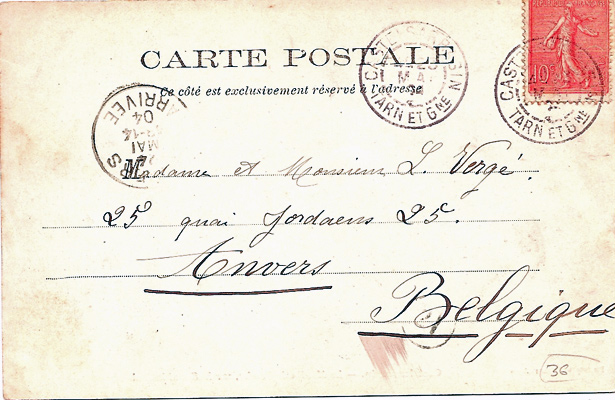 CARTE POSTALE
Ce côté est exclusivement réservé à l'adresse
CASTELSARRASIN
MAI
TARN ET GNE
10c
CAST
TARN ET GNE
ARRIVEE
04
MAI
Madame et Monsieur L. Vergé.
25 quai Jordaens 25.
Anvers
Belgique
36